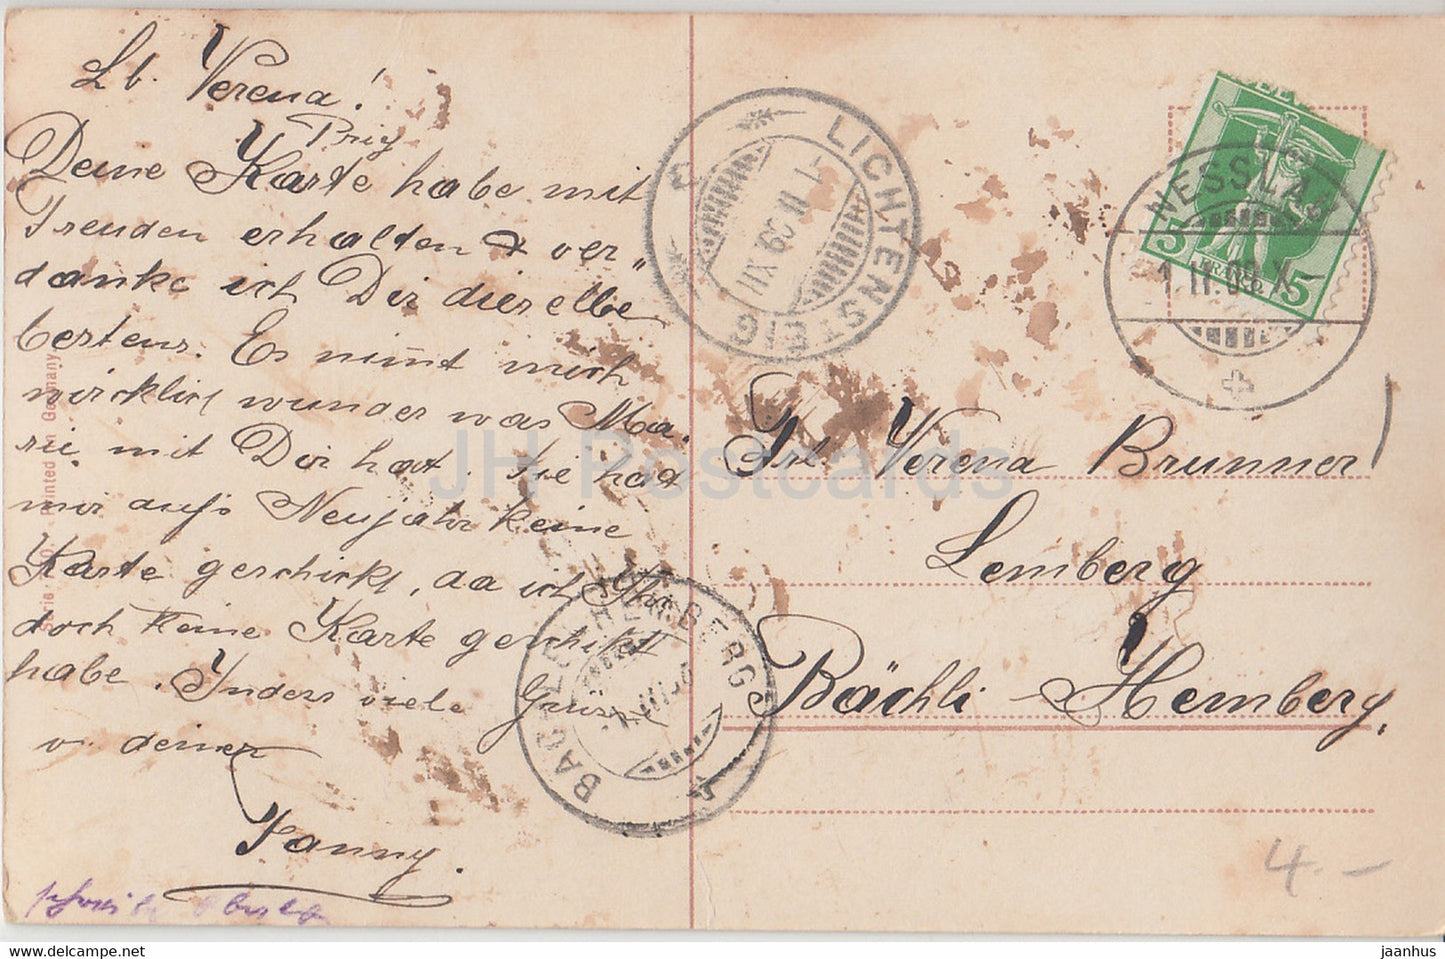 Lb. Verena!
Deine Karte habe mit
Freuden erhalten & ver„
danke ich Dir dieselbe
bestens. Es nimt mich
wirklich wunder was Ma„
rie mit Dir hat. Sie hat
mir aufs Neujahr keine
Karte geschickt, da ich Ihr
doch keine Karte geschikt
habe. Inders viele Grüsse
v. deiner
Fanny.
Printed in Germany
LICHTENSTEIG
NESSLAU
HELVETIA
5 FRANCO 5
1 II 09 X-
BÄCHLI (HEMBERG)
Frl. Verena Brunner
Lemberg
Bächli - Hemberg.
4.-
JH Postcards
https://jhpostcards.com
jaanhus